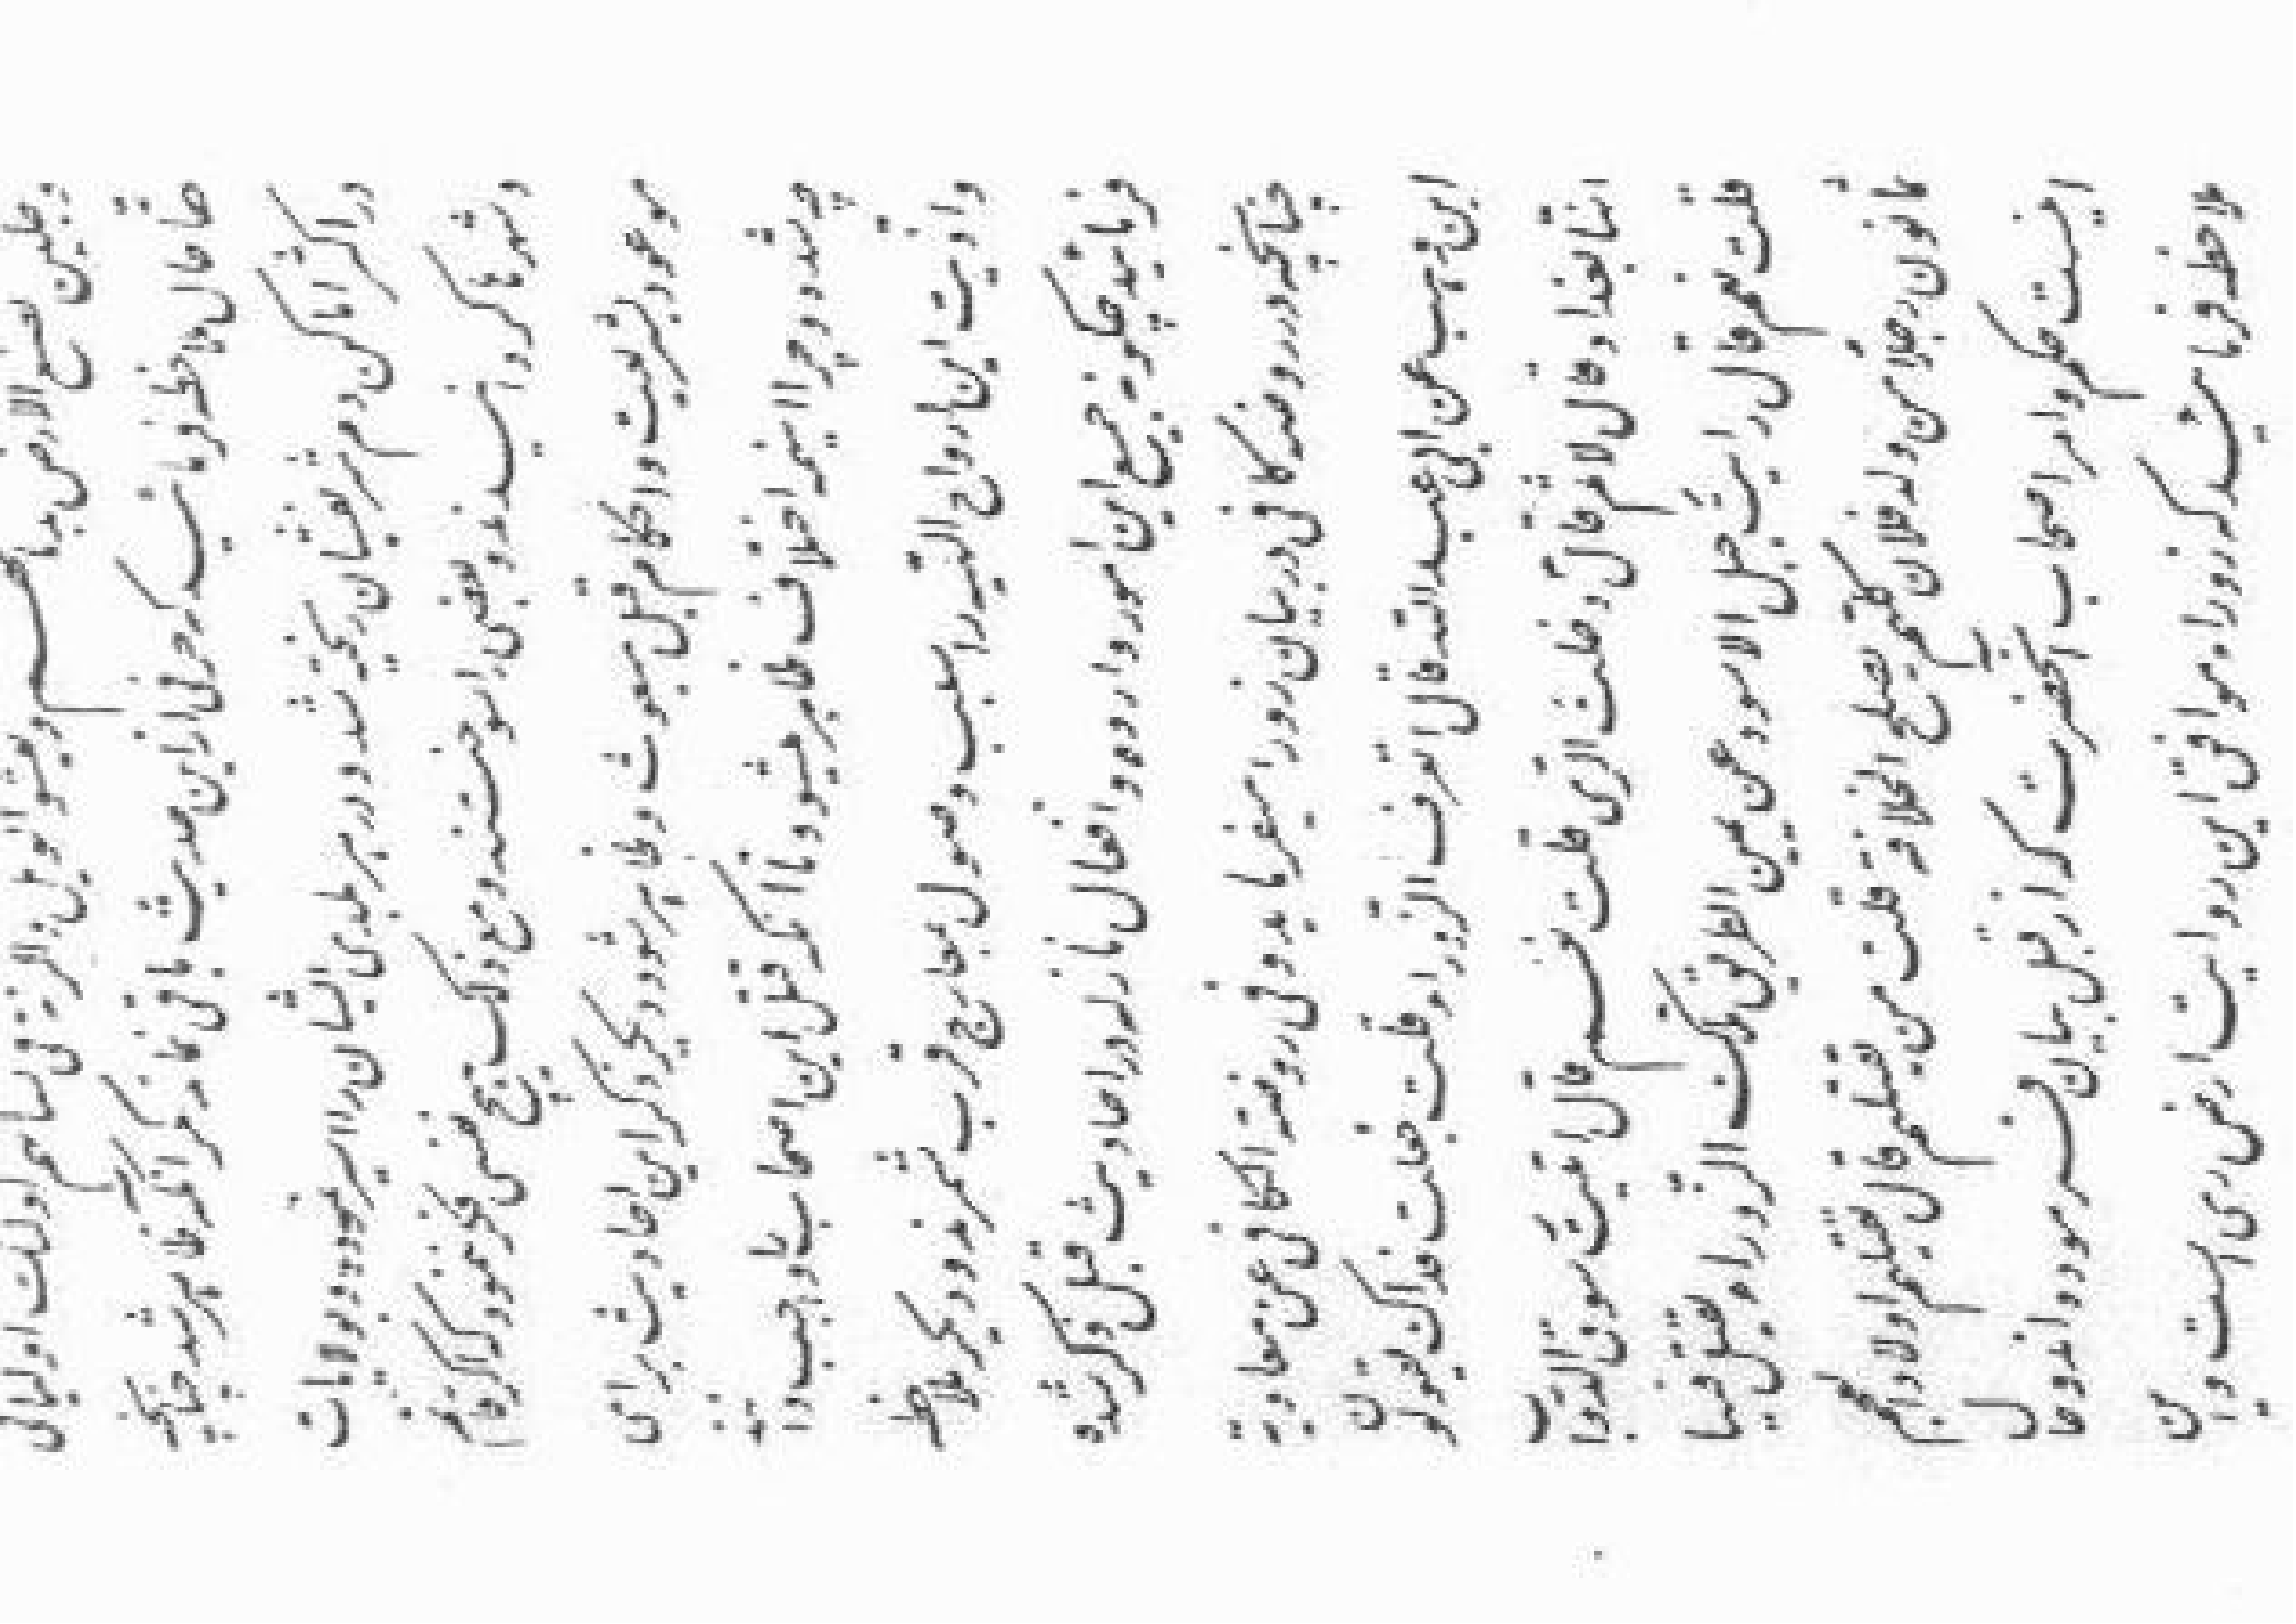 وجلین تصبغ الارض بدمائهم ویفشو الویل والرنة فی نسائهم اولئک اولیائی
حقا حال ملاحظه فرمائید که حرفی از این حدیث باقی نماند مگر آنکه ظاهر شد چنانچه
در اکثر اماکن دم شریفشان ریخته شد و در هر بلدی ایشان را اسیر نموده و بولایات
و شهرها گردانیدند و بعضی را سوختند و مع ذلک هیچ نفسی فکر ننمود که اگر قائم
موعود بشریعت و احکام قبل مبعوث و ظاهر شود دیگر ذکر این احادیث برای
چه شده و چرا اینهمه اختلاف ظاهر میشود تا آنکه قتل این اصحاب را واجب دانند
و اذیت این ارواح را سبب وصول بمعارج قرب شمرند و دیگر ملاحظه
فرمائید چگونه جمیع این امور وارده و افعال نازله در احادیث قبل ذکر شده
چنانچه در روضه کافی در بیان زوراء میفرماید و فی روضة الکافی عن معاویة
ابن وهب عن ابی عبدالله قال اتعرف الزوراء قلت جعلت فداک یقولون
انها بغداد قال لا ثم قال دخلت الری قلت نعم قال اتیت سوق الدواب
قلت نعم قال رایت جبل الاسود عن یمین الطریق تلک الزوراء یقتل فیها
ثمانون رجلا من ولد فلان کلهم یصلح الخلافة قلت من یقتلهم قال یقتلهم اولاد العجم
اینست حکم و امر اصحاب آنحضرت که از قبل بیان فرموده‌اند و حال
ملاحظه فرمائید که زوراء موافق این روایت ارض ری است و این